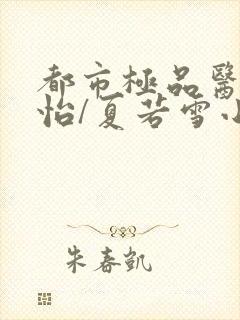 都市極品醫
怡/夏若雪小
朱春凱